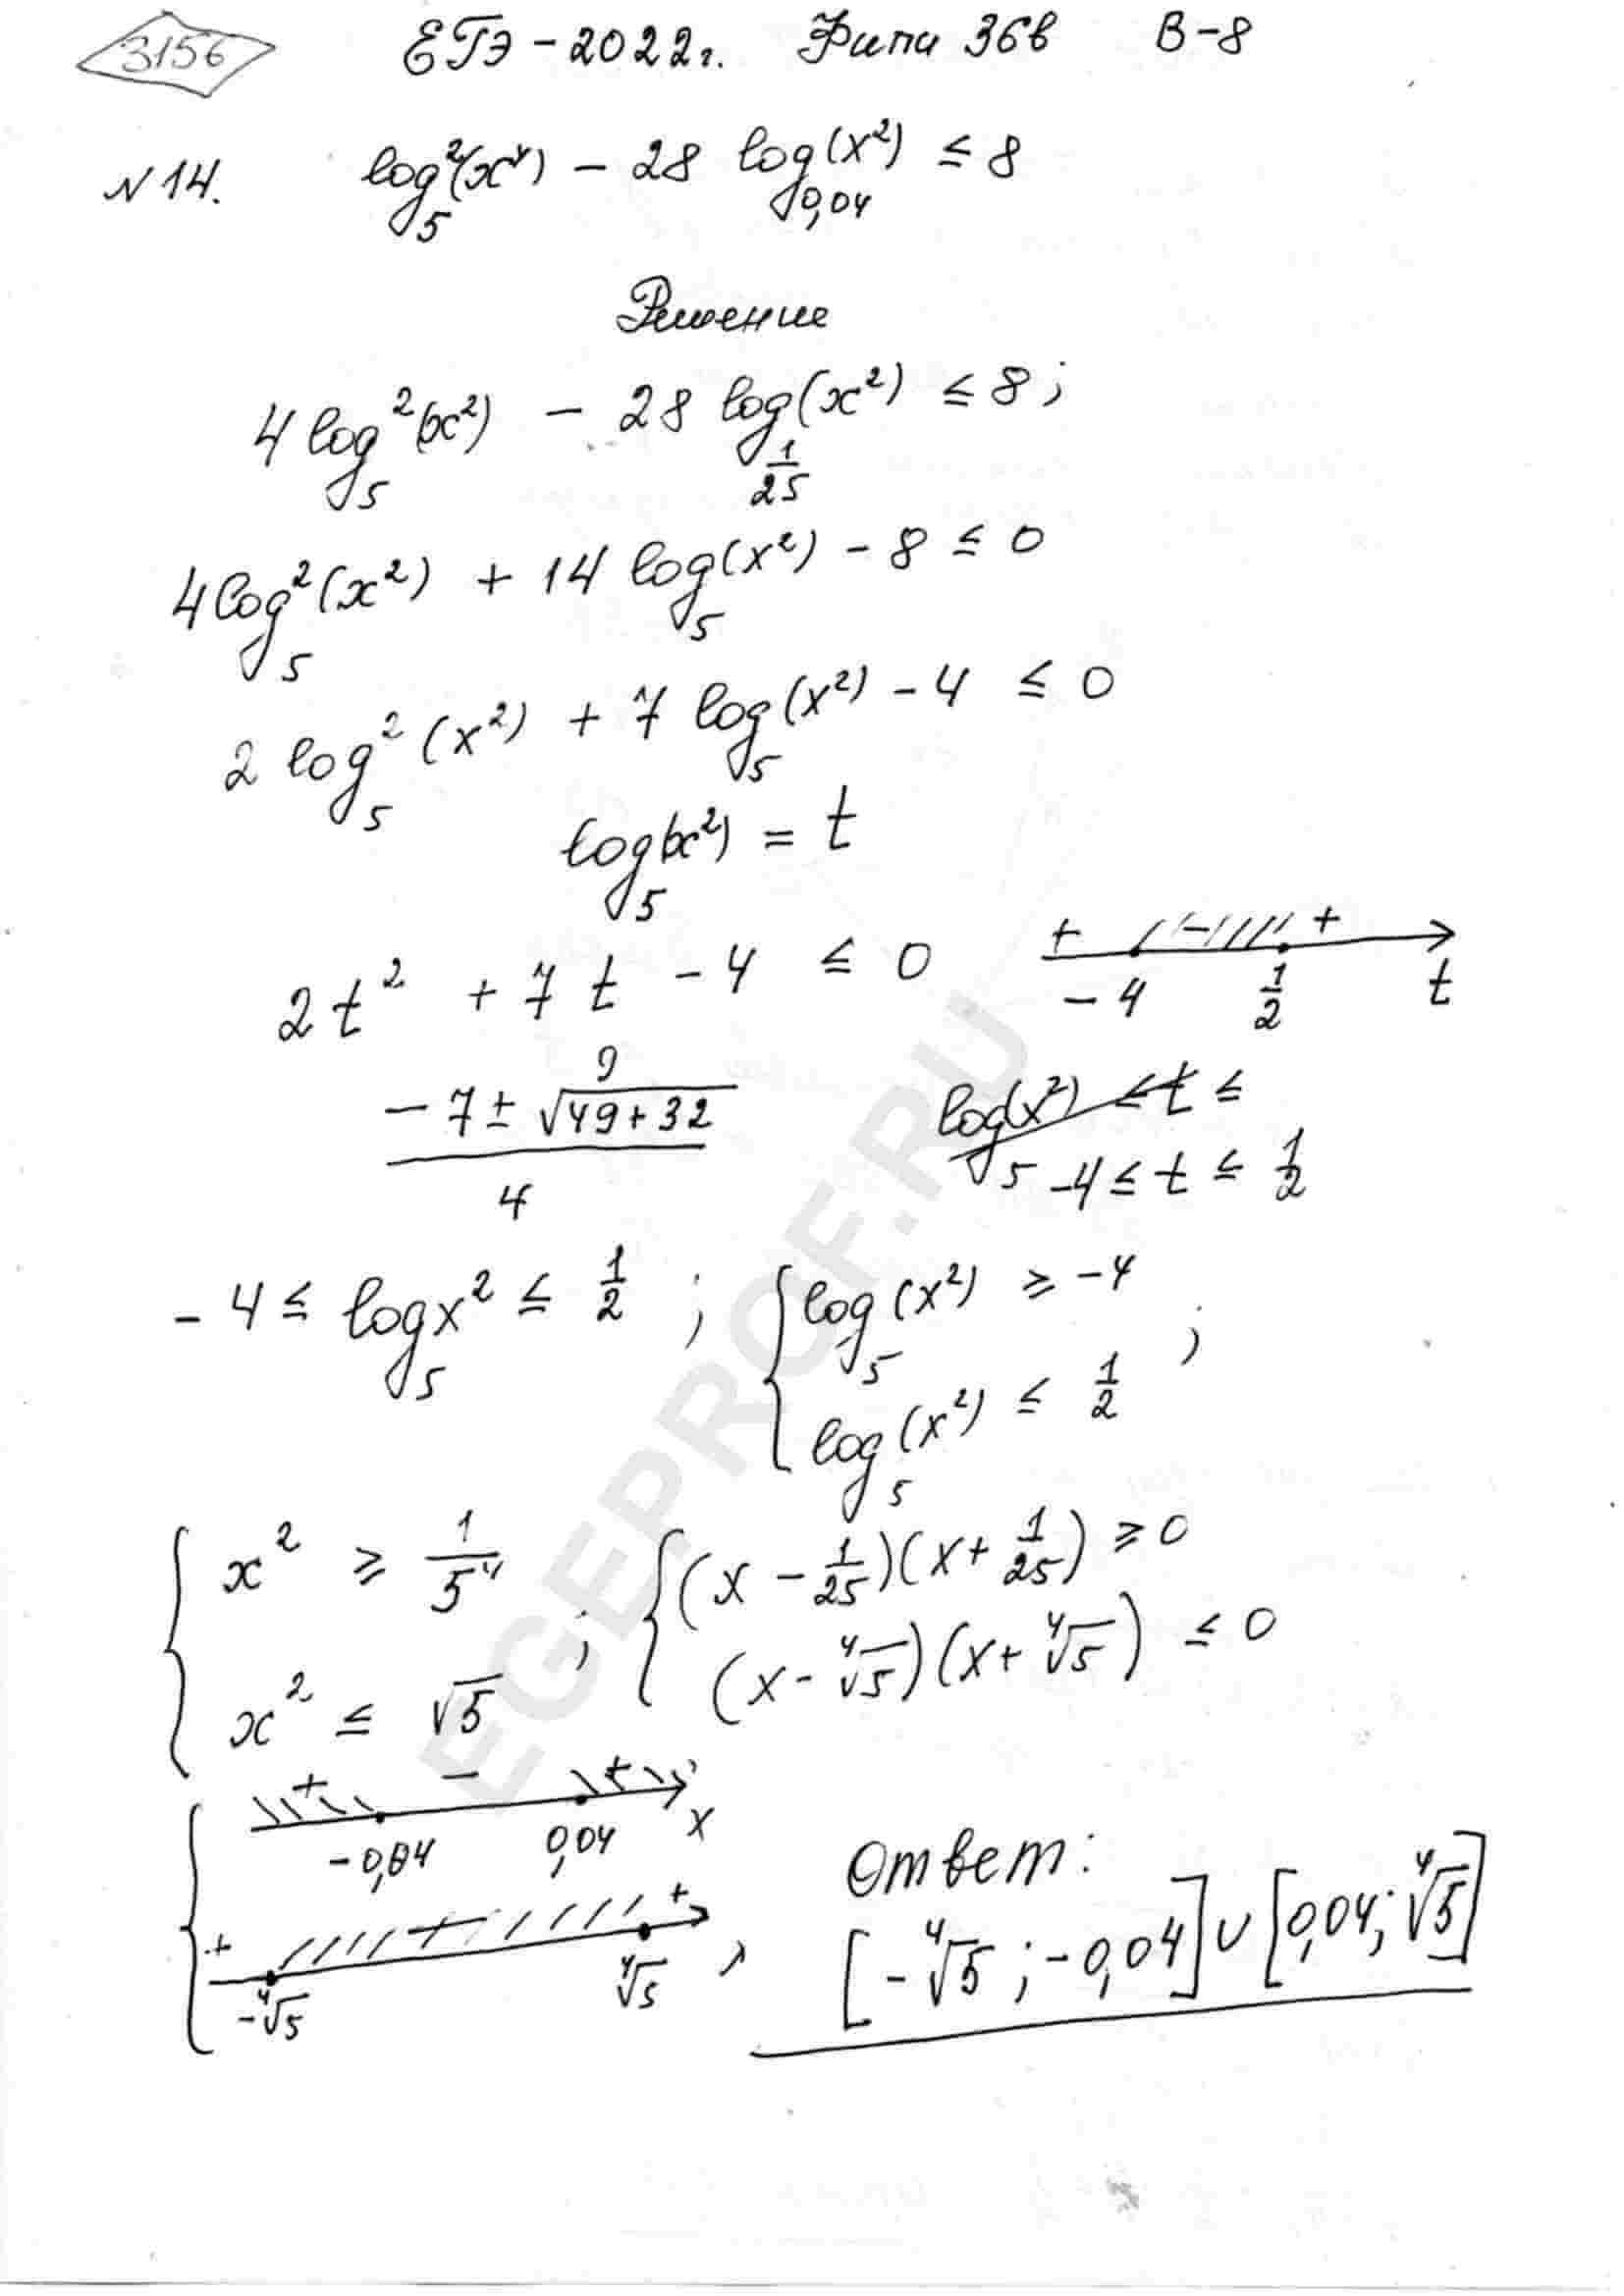 3156 ЕГЭ - 2022г. Фипи 36в В-8
N 14. log₅²(x⁴) - 28 log₀,₀₄(x²) ≤ 8
Решение
4 log₅²(x²) - 28 log_{1/25}(x²) ≤ 8;
4 log₅²(x²) + 14 log₅(x²) - 8 ≤ 0
2 log₅²(x²) + 7 log₅(x²) - 4 ≤ 0
log₅(x²) = t
2t² + 7t - 4 ≤ 0
+ - +
-4 1/2 t
9
-7 ± √(49+32)
4
log₅(x²) ≤ t ≤
-4 ≤ t ≤ 1/2
-4 ≤ log₅x² ≤ 1/2 ; { log₅(x²) ≥ -4
log₅(x²) ≤ 1/2 ;
{ x² ≥ 1/5⁴ ; { (x - 1/25)(x + 1/25) ≥ 0
x² ≤ √5 (x - ⁴√5)(x + ⁴√5) ≤ 0
+ - +
-0,04 0,04 x
+ - +
-⁴√5 ⁴√5
Ответ:
[-⁴√5; -0,04] ∪ [0,04; ⁴√5]
EGEPROF.RU